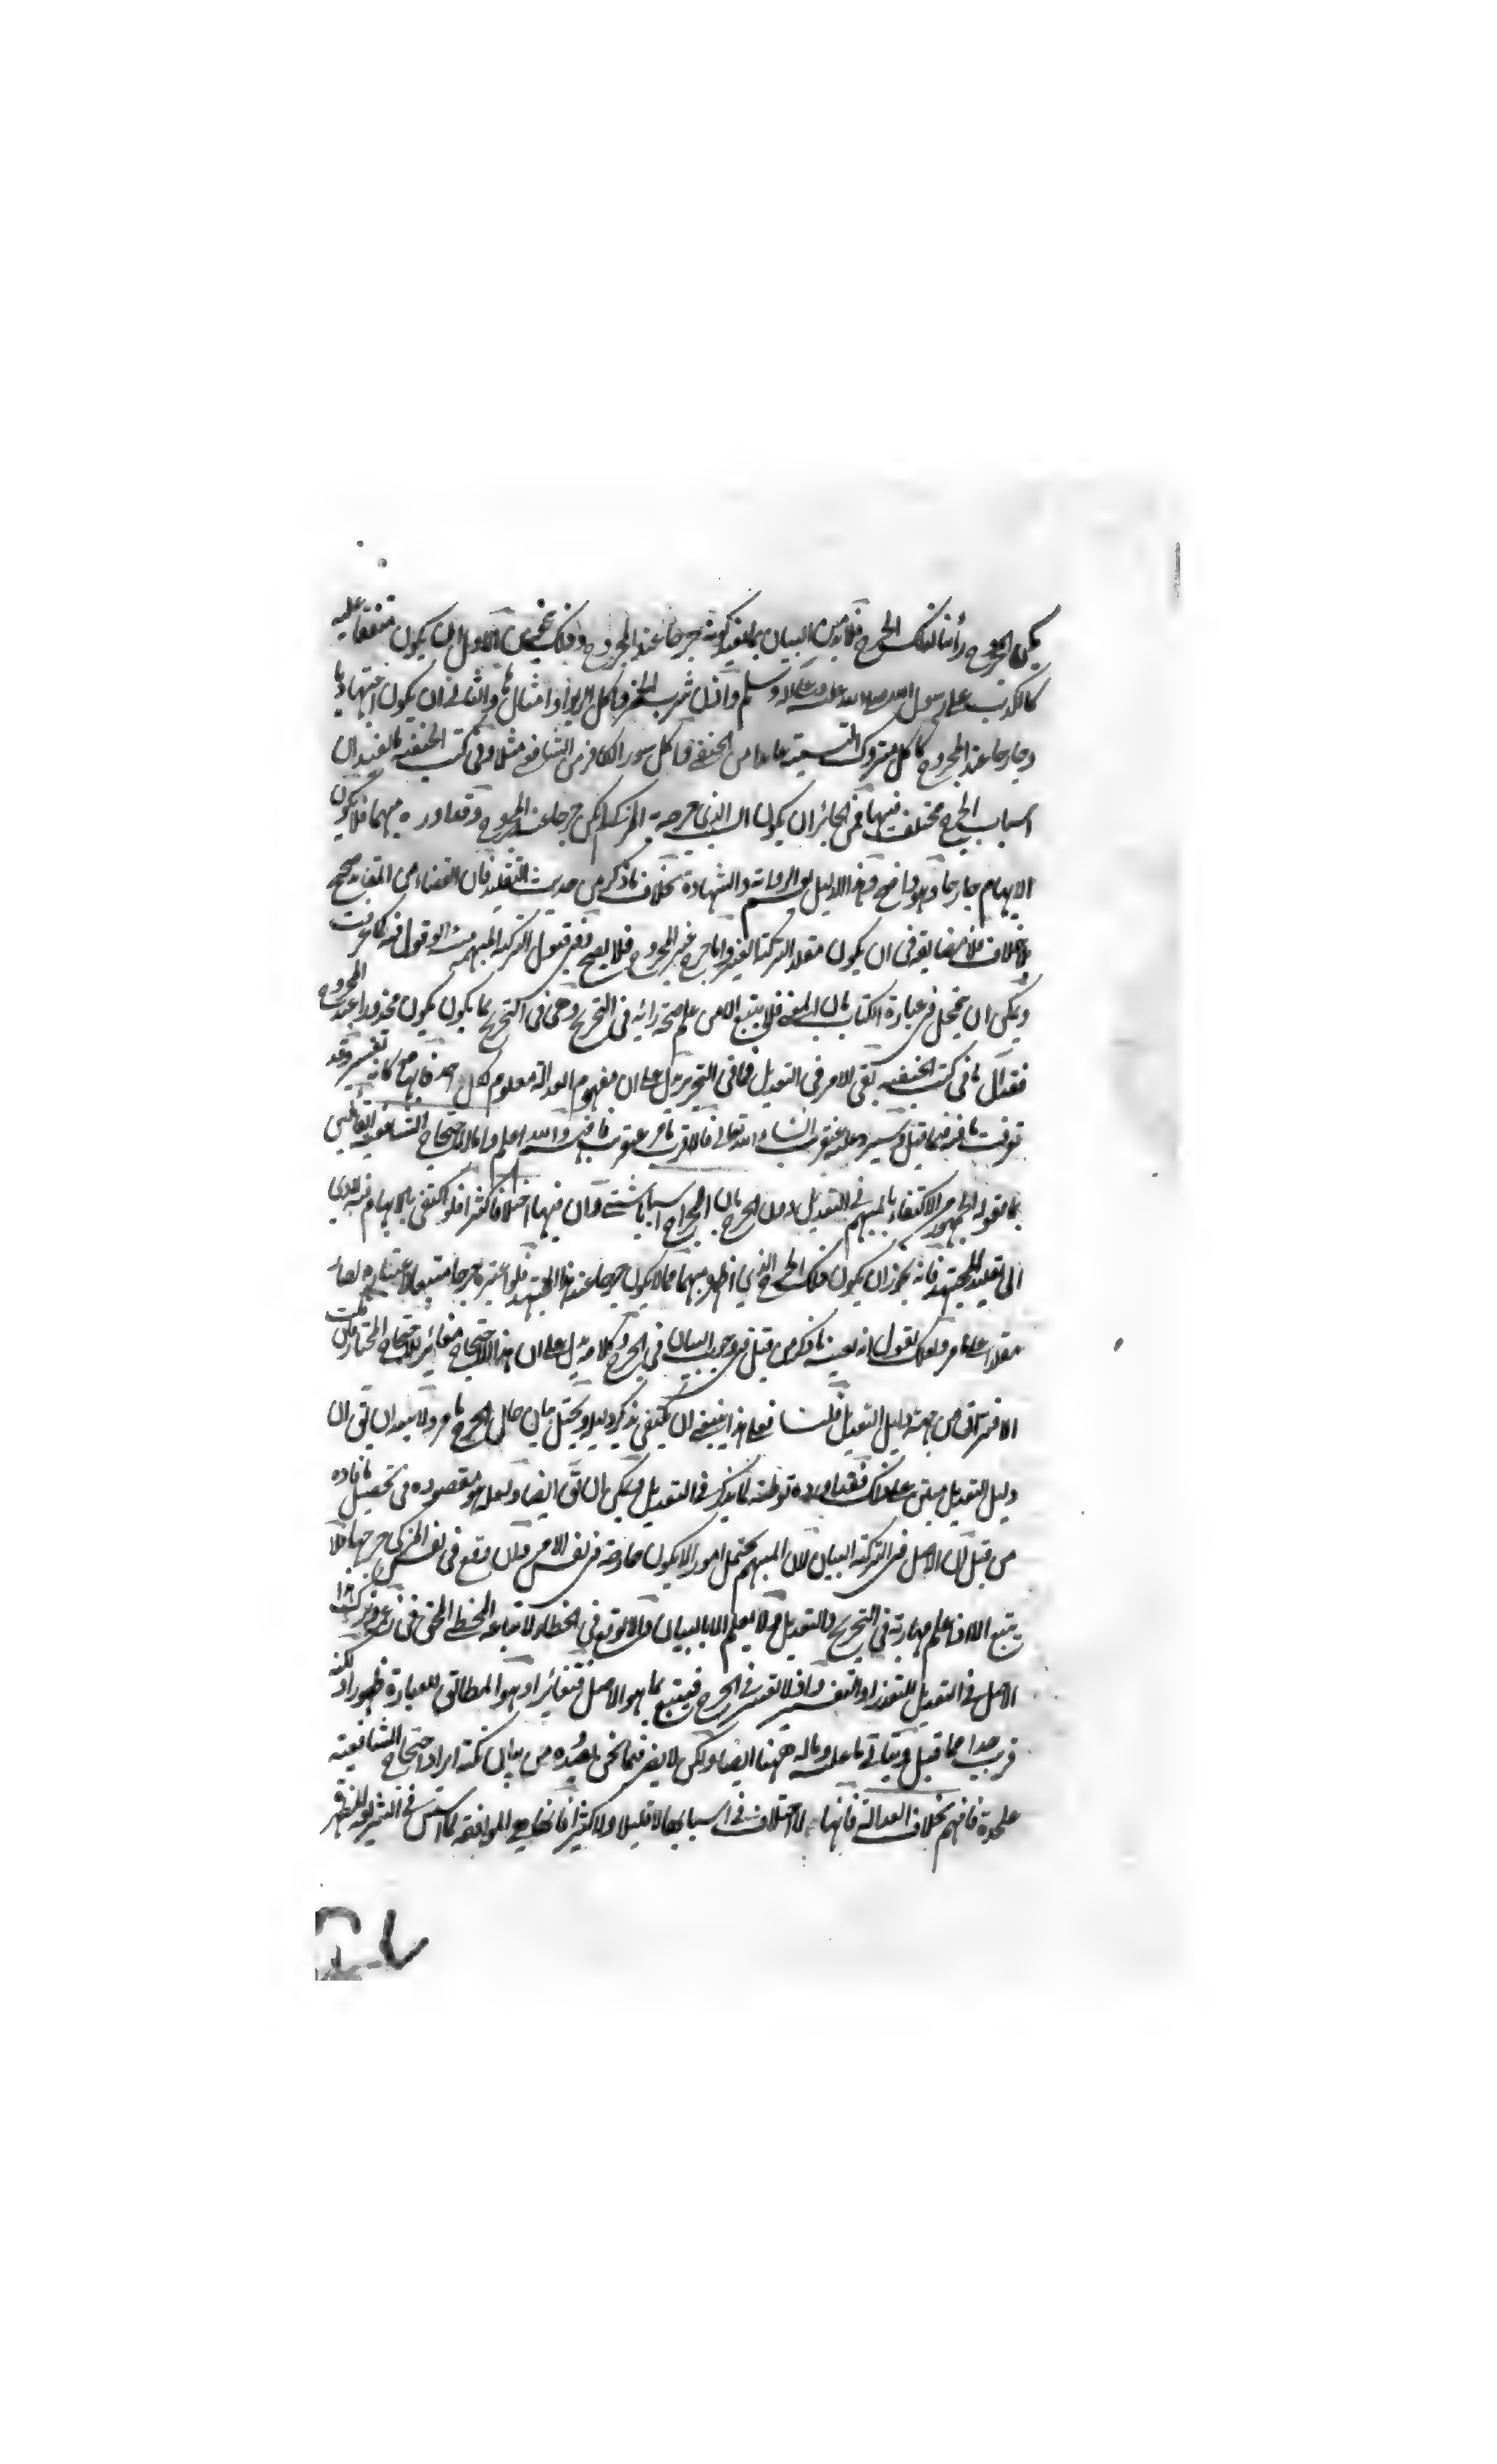 يكن المجروح رأينا لذلك الجرح فلا بد من البيان بما يفيد كونه جرحا عند المجروح وذلك بنحوين الاول ان يكون متفقا عليه
كالكذب على رسول الله صلى الله عليه وعلى آله وسلم واذن شرب الخمر واكل الربوا وامثالهما والثاني ان يكون اجتهاديا
وجارحا عند المجروح كاكل متروك التسمية عامدا من الحنفي واكل سور الكافر من الشافعي مثلا وفي كتب الحنفية ما يفيد ان
اسباب الجرح مختلف فيها فمن الجائز ان يكون السبب الذي جرحه المزكي لم يكن جرحا عند المجروح وقد اورده مبهما فلا يكون
الابهام جارحا وهو واضح وهذا الدليل يعم الرواية والشهادة بخلاف ما ذكر من حديث التقليد فان القضاء من المقلد صحيح
بلا خلاف فلا مضايقة في ان يكون مقلدا لتزكية الغير واما جرح غير المجروح فلا يصح قبول التزكية المبهمة الوقوع فيه كما عرفت
ويمكن ان يتمحل في عبارة الكتاب بان المعنى فلا يتبع الا من علم صحة رائه في التجريح وهي في التجريح بما يكون يكون محذورا عند المجروح
فقد آل ما في كتب الحنفية بقي الامر في التعديل فما في التحرير يدل على ان مفهوم العدالة معلوم لكل احد فابهامه كانه تفسير وقد
توقف فيه فيما قبل وسيرد عليه عن قريب ان شاء الله تعالى فالاقرب ما مر عن قريب فافهم والله اعلم واما الاحتجاج الشافعية القائلين
بما يقوله الجمهور الاكتفاء بالمبهم في التعديل دون الجرح بان الجراح اسبابه شتى وان فيها اختلافا كثيرا فلو اكتفى بالابهام فيه لادي
الى تقليد المجتهد فانه يجوز ان يكون ذلك الجرح الذي اظهر مبهما مما لا يكون جرحا عند هذا المجتهد فلو اعتبره جرحا متبعا لاعتباره لصار
مقلدا على ما مر ولعلك تقول انه بعينه ما ذكر من قبل في وجوب البيان في الجرح وكلامه يدل على ان هذا الاحتجاج مغائر للاحتجاج المختار قلت
الافتراق من جهة دليل التعديل قلت فعلى هذا ينبغي ان يكتفي بذكر دليله ويحتمل بيان حال الجرح ما مر ولا يبعد ان يق ان
دليل التعديل مبتن على ذلك فقد اورده توطئة لما يذكر في التعديل ويمكن ان يق ايضا ولعله هو مقصوده في تحصيل ما افاده
من قبل ان الاصل في التزكية البيان لان المبهم يحتمل امورا لا يكون جارحة في نفس الامر وان وقع في نفس المزكي جرحها فلا
يتبع الا من علم مهارته في التجريح والتعديل ولا يعلم الا بالبيان والا لوقع في الخطاء لاتباعه المخطي المحق في زعمه وترك هذا
الاصل في التعديل للتعذر او التعسر واذ لا تعسر في الجرح فيتبع بما هو الاصل فتغائرا وهو المطابق للعبارة ظهورا ولكنه
قريب جدا مما قبل ويتاتى ما عليه وماله ههنا ايضا ولكن لا يضر فيما نحن بصدده من بيان نكتة ايراد احتجاج الشافعية
علحدة فافهم بخلاف العدالة فانها لا اختلاف في اسبابها لا قليلا ولا كثيرا فانها هي الموافقة لما اسس في الشريعة المطهر